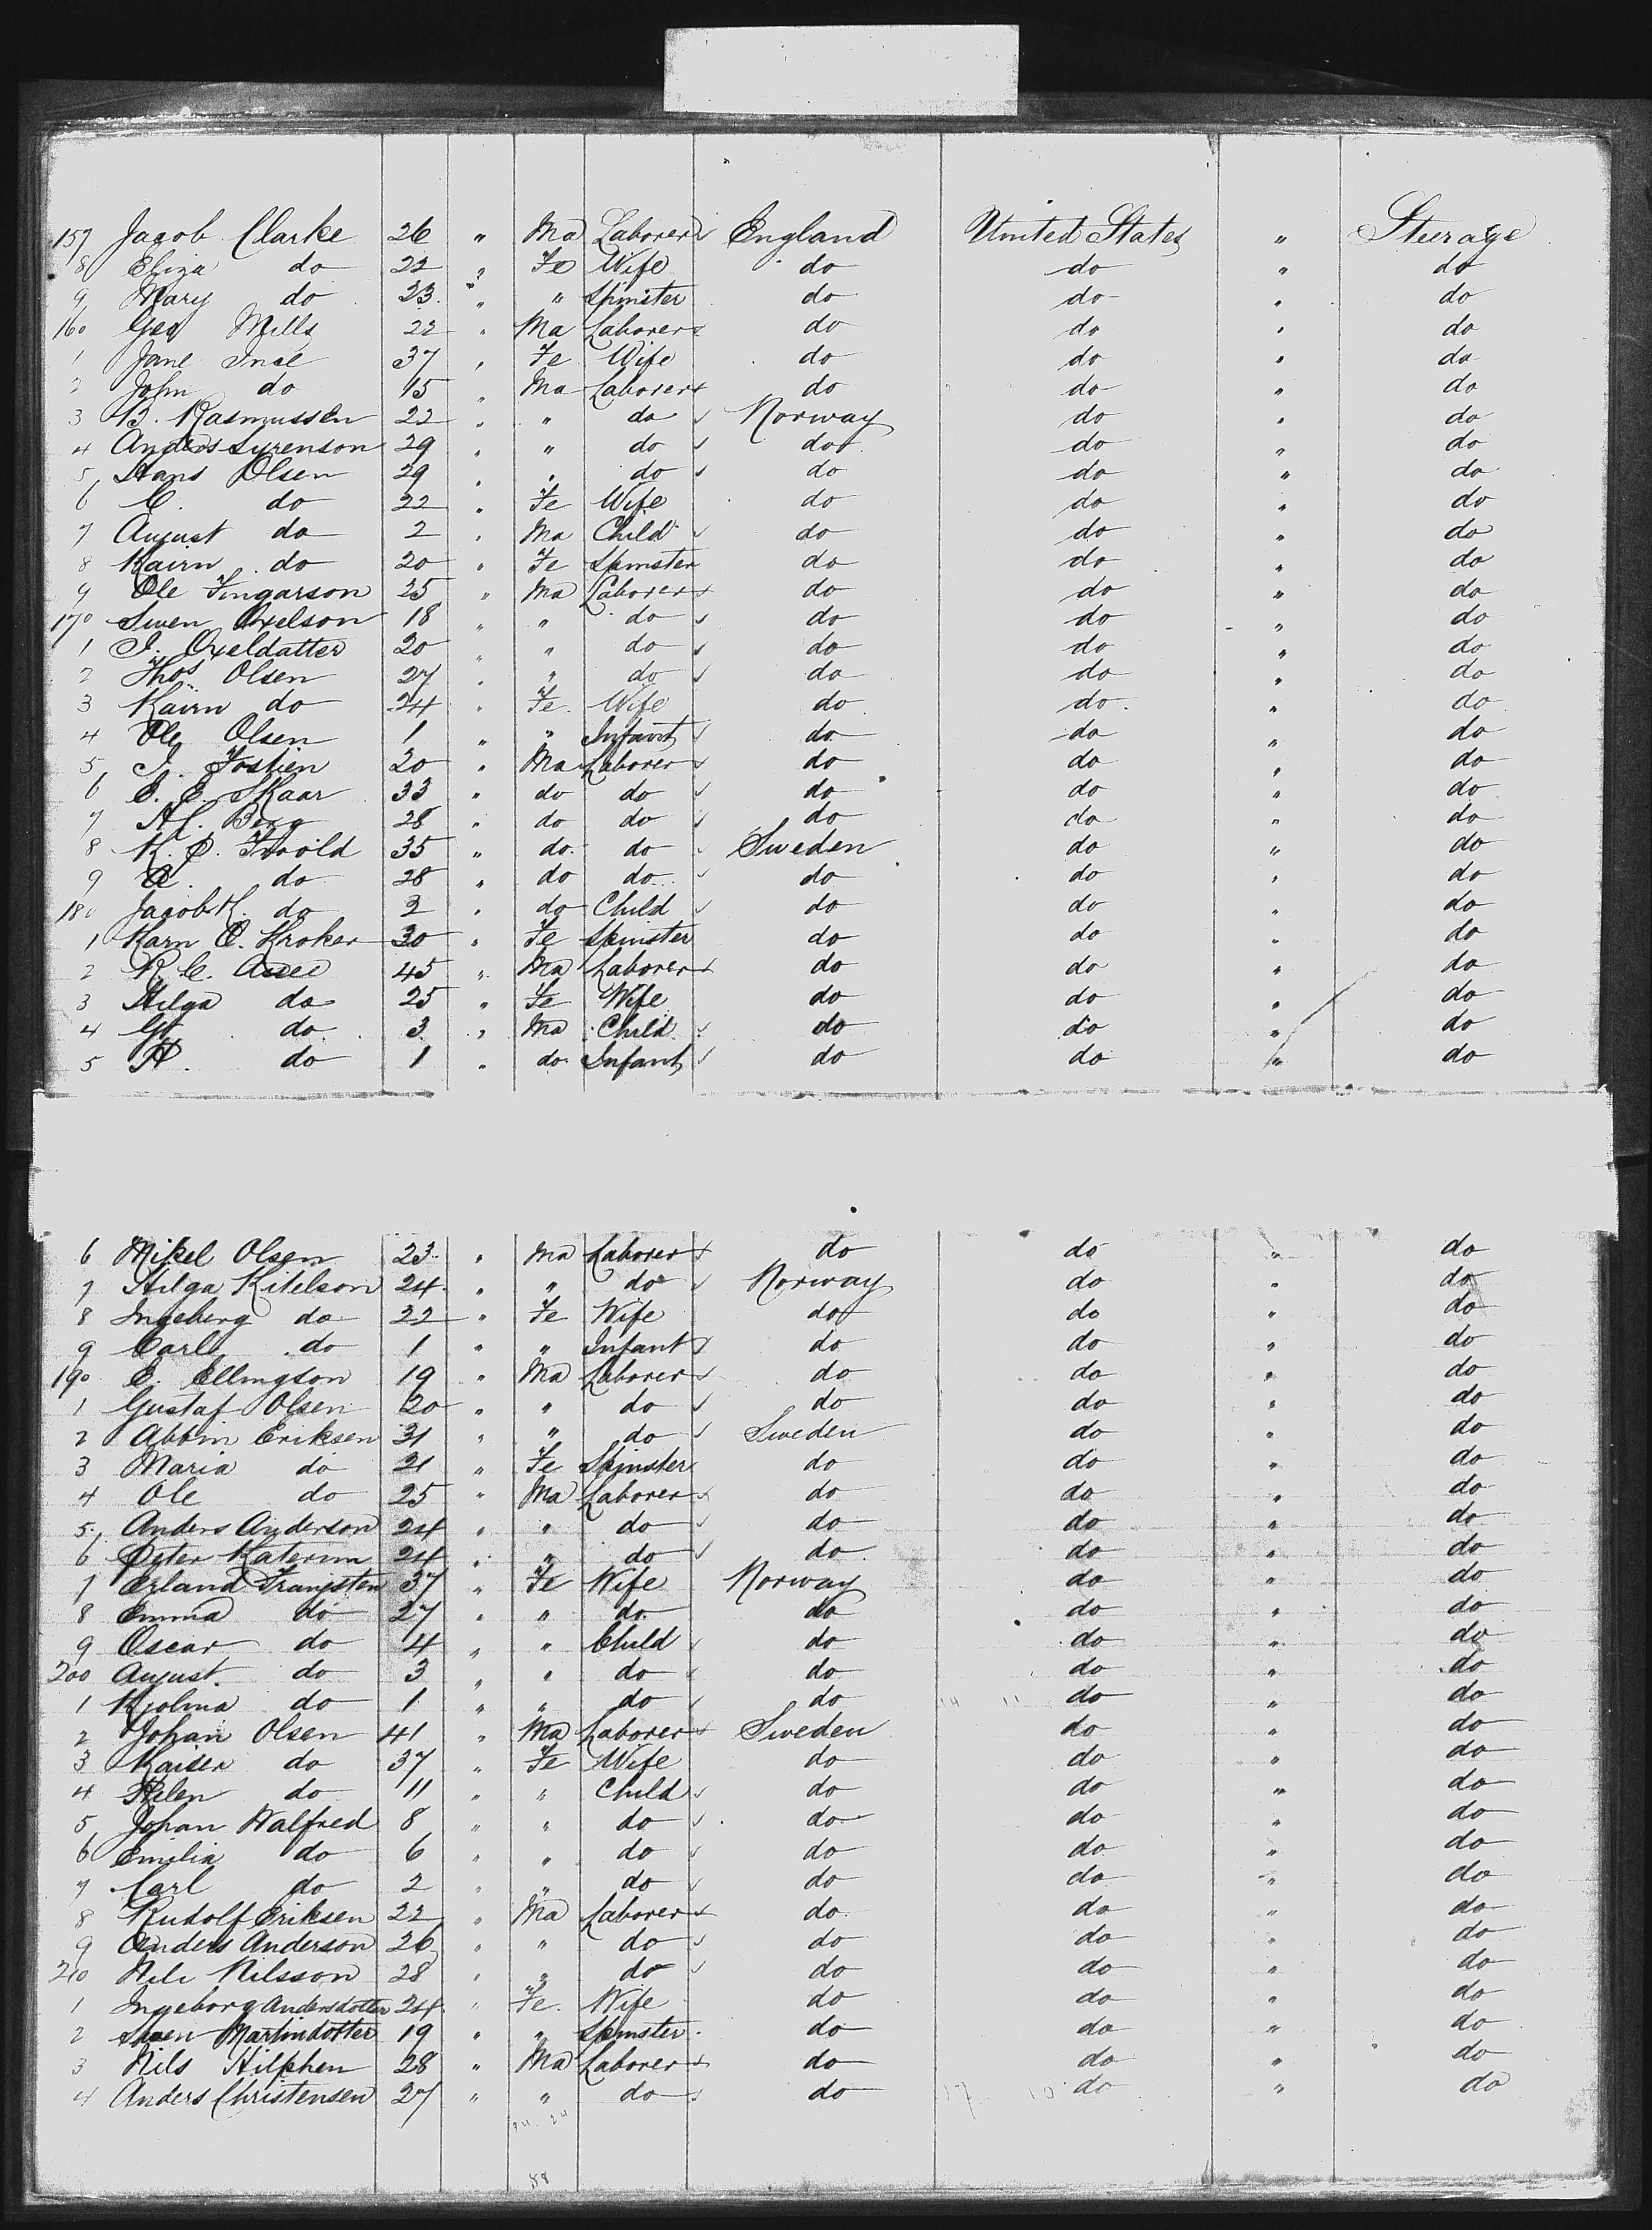 157 Jacob Clarke 26 " Ma Laborer England United States " Steerage
8 Eliza do 22 " Fe Wife do do " do
9 Mary do 23 " " Spinster do do " do
160 Geo Mills 22 " Ma Laborer do do " do
1 Jane Ince 37 " Fe Wife do do " do
2 John do 15 " Ma Laborer do do " do
3 B. Rasmussen 22 " " do Norway do " do
4 Anders Syrenson 29 " " do do do " do
5 Hans Olsen 29 " " do do do " do
6 C. do 22 " Fe Wife do do " do
7 August do 2 " Ma Child do do " do
8 Kairn do 20 " Fe Spinster do do " do
9 Ole Fingarson 25 " Ma Laborer do do " do
170 Swen Axelson 18 " " do do do " do
1 I. Oxeldatter 20 " " do do do " do
2 Thos. Olsen 27 " " do do do " do
3 Kairn do 24 " Fe. Wife do do. " do
4 Ole Olsen 1 " " Infant do do " do
5 I. Fostien 20 " Ma Laborer do do " do
6 E. E. Skaar 33 " do do do do " do
7 H. Berg 28 " do do do do " do
8 K. P. 35 " do. do Sweden do " do
9 do 28 " do do do do " do
180 Jacob K. do 2 " do Child do do " do
1 Karn O. Kroker 30 " Fe Spinster do do " do
2 K. C. 45 " Ma Laborer do do " do
3 Hilga do 25 " Fe Wife do do " do
4 G do 3 " Ma Child do do " do
5 H. do 1 " do Infant do do " do
6 Mikel Olsen 23 " Ma Laborer do do " do
7 Hilga Kitelson 24 " " do Norway do " do
8 Ingeberg do 22 " Fe Wife do do " do
9 Carl do 1 " " Infant do do " do
190 E. Ellingson 19 " Ma Laborer do do " do
1 Gustaf Olsen 20 " " do do do " do
2 Abbin Eriksen 31 " " do Sweden do " do
3 Maria do 21 " Fe Spinster do do " do
4 Ole do 25 " Ma Laborer do do " do
5 Anders Anderson 24 " " do do do " do
6 Peter Katerin 24 " " do do do " do
7 Erland Frangsten 37 " Fe Wife Norway do " do
8 Emma do 27 " " do. do do " do
9 Oscar do 4 " " Child do do " do
200 August. do 3 " " do do do " do
1 Hjolma do 1 " " do do do " do
2 Johan Olsen 41 " Ma Laborer Sweden do " do
3 Kaisen do 37 " Fe Wife do do " do
4 Helen do 11 " " Child do do " do
5 Johan Walfred 8 " " do do do " do
6 Emilia do 6 " " do do do " do
7 Carl do 2 " " do do do " do
8 Rudolf Eriksen 22 " Ma Laborer do do " do
9 Anders Anderson 26 " " do do do " do
210 Nils Nilsson 28 " " do do do " do
1 Ingeborg Andersdotter 24 " Fe. Wife do do " do
2 Martindotter 19 " " Spinster do do " do
3 Nils Hilphen 28 " Ma Laborer do do " do
4 Anders Christensen 27 " " do do do " do